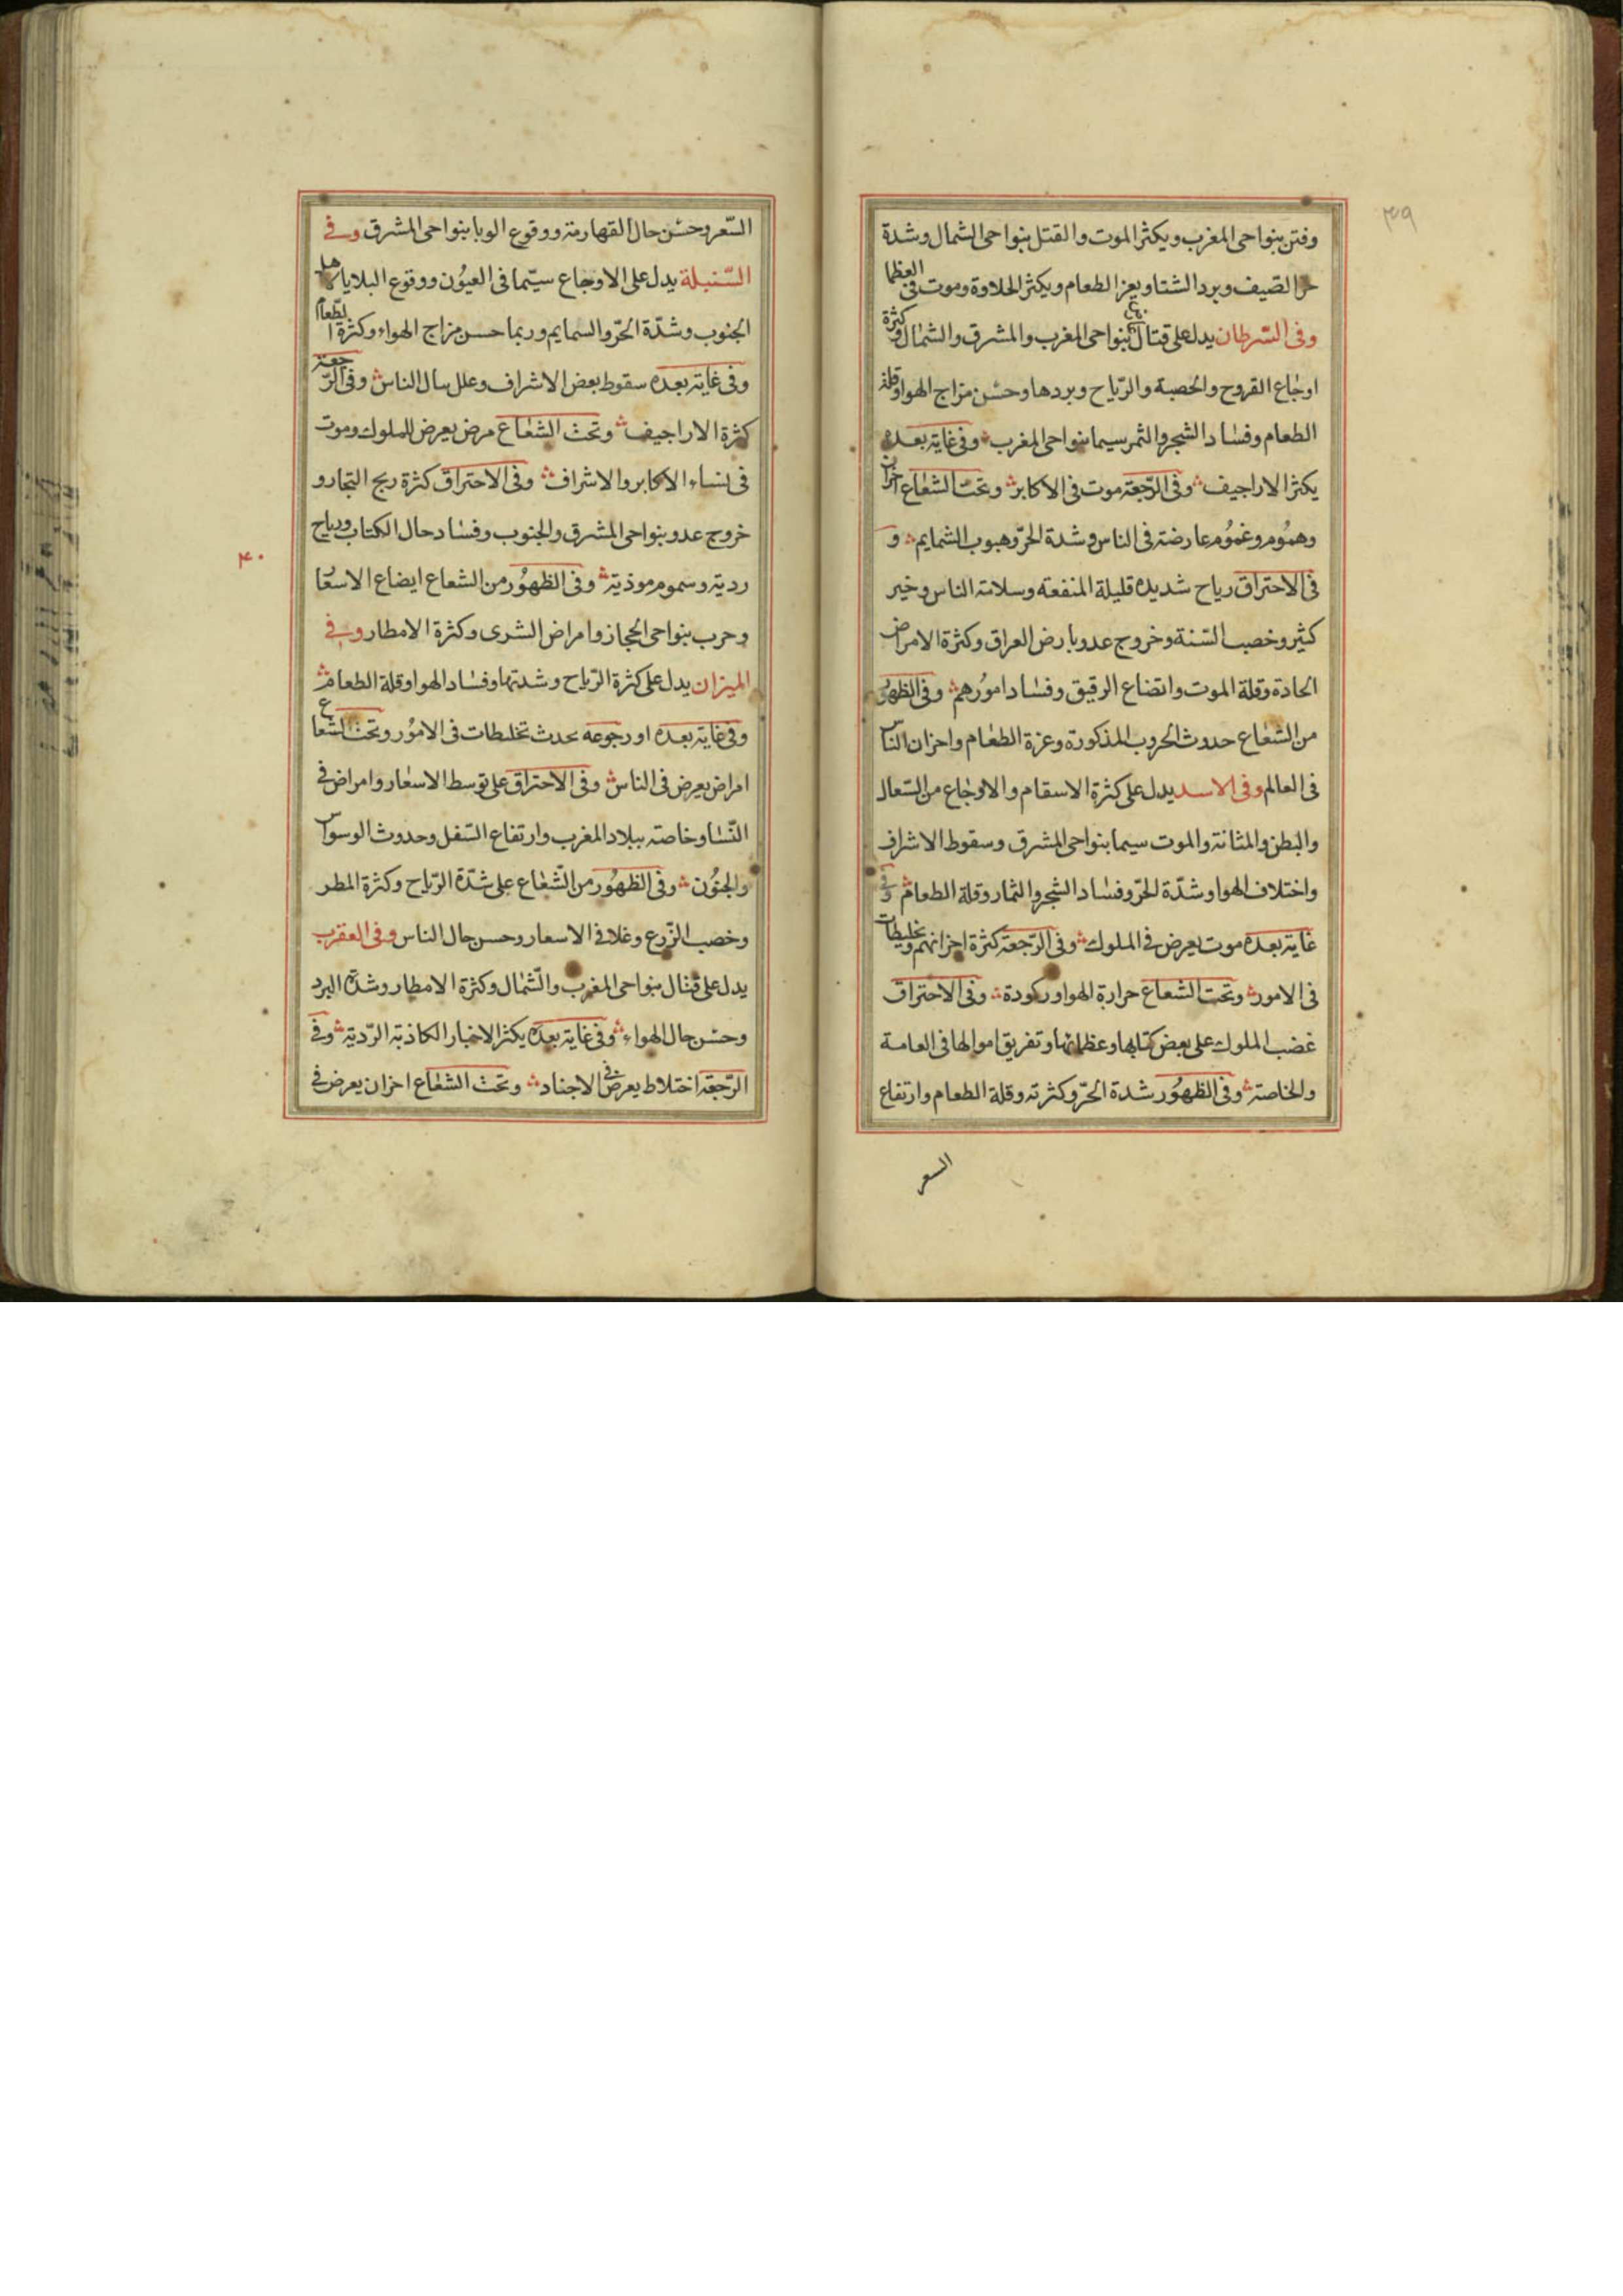 ٣٩
وفتن بنواحى المغرب ويكثر الموت والقتل بنواحى الشمال وشدة
حر الصيف وبرد الشتا ويعز الطعام ويكثر الحلاوة وموت فى العظما
وفى السّرطان يدل على قتال يقع بنواحى المغرب والمشرق والشمال وكثرة
اوجاع القروح والحصبة والرّياح وبردها وحسْن مزاج الهوا وقلة
الطعام وفساد الشجر والثمر سيما بنواحى المغرب وفى غاية بعده
يكثر الاراجيف وفى الرّجعة موت فى الاكابر وتحت الشعاع احزان
وهمُوم وغمُوم عارضة فى الناس وشدة الحرّ وهبوب الشمايم و
فى الاحتراق رياح شديدة قليلة المنفعة وسلامة الناس وخير
كثير وخصب السّنة وخروج عدو بارض العراق وكثرة الامراض
الحادة وقلة الموت واتضاع الرقيق وفساد امورهم وفى الظهور
من الشعاع حدوث الحروب المذكورة وعزة الطعام واحزان الناس
فى العالم وفى الاسد يدل على كثرة الاسقام والاوجاع من السّعال
والبطن والمثانة والموت سيما بنواحى المشرق وسقوط الاشراف
واختلاف الهوا وشدّة الحرّ وفساد الشجر والثمار وقلة الطعام وفى
غاية بعده موت يعرض فى الملوك وفى الرّجعة كثرة احزانهم وتخليطات
فى الامور وتحت الشعاع حرارة الهوا وركودة وفى الاحتراق
غضب الملوك على بعض كتابها وعظمائها وتفريق اموالها فى العامة
والخاصة وفى الظهُور شدة الحرّ وكثرته وقلة الطعام وارتفاع
السعر
السّعر وحسْن حال القهارمة ووقوع الوبا بنواحى المشرق وفى
السّنبلة يدل على الاوجاع سيّما فى العيُون ووقوع البلايا باهل
الجنوب وشدّة الحرّ والسمايم وربما حسن مزاج الهواء وكثرة الطّعام
وفى غاية بعده سقوط بعض الاشراف وعلل سال الناس وفى الرّجعة
كثرة الاراجيف وتحت الشعاع مرض يعرض للملوك وموت
فى نساء الاكابر والاشراف وفى الاحتراق كثرة ربح التجار و
خروج عدو بنواحى المشرق والجنوب وفساد حال الكتاب ورياح
ردية وسموم موذية وفى الظهُور من الشعاع ايضاع الاسعا
وحرب بنواحى الحجاز وامراض الشرى وكثرة الامطار وفى
٤٠
الميزان يدل على كثرة الرّياح وشدتها وفساد الهوا وقلة الطعام
وفى غاية بعده او رجوعه يحدث تخليطات فى الامُور وتحت الشعاع
امراض يعرض فى الناس وفى الاحتراق على توسط الاسعار وامراض فى
النّسا وخاصة ببلاد المغرب وارتفاع السّفل وحدوث الوسواس
والجنُون وفى الظهُور من الشّعاع على شدّة الرّياح وكثرة المطر
وخصب الزّرع وغلا فى الاسعار وحسن حال الناس وفى العقرب
يدل على قتال بنواحى المغرب والشّمال وكثرة الامطار وشدّة البرد
وحسْن حال الهواء وفى غاية بعده يكثر الاخبار الكاذبة الرّدية وفى
الرّجعة اختلاط يعرض فى الاجناد وتحت الشعاع احزان يعرض فى